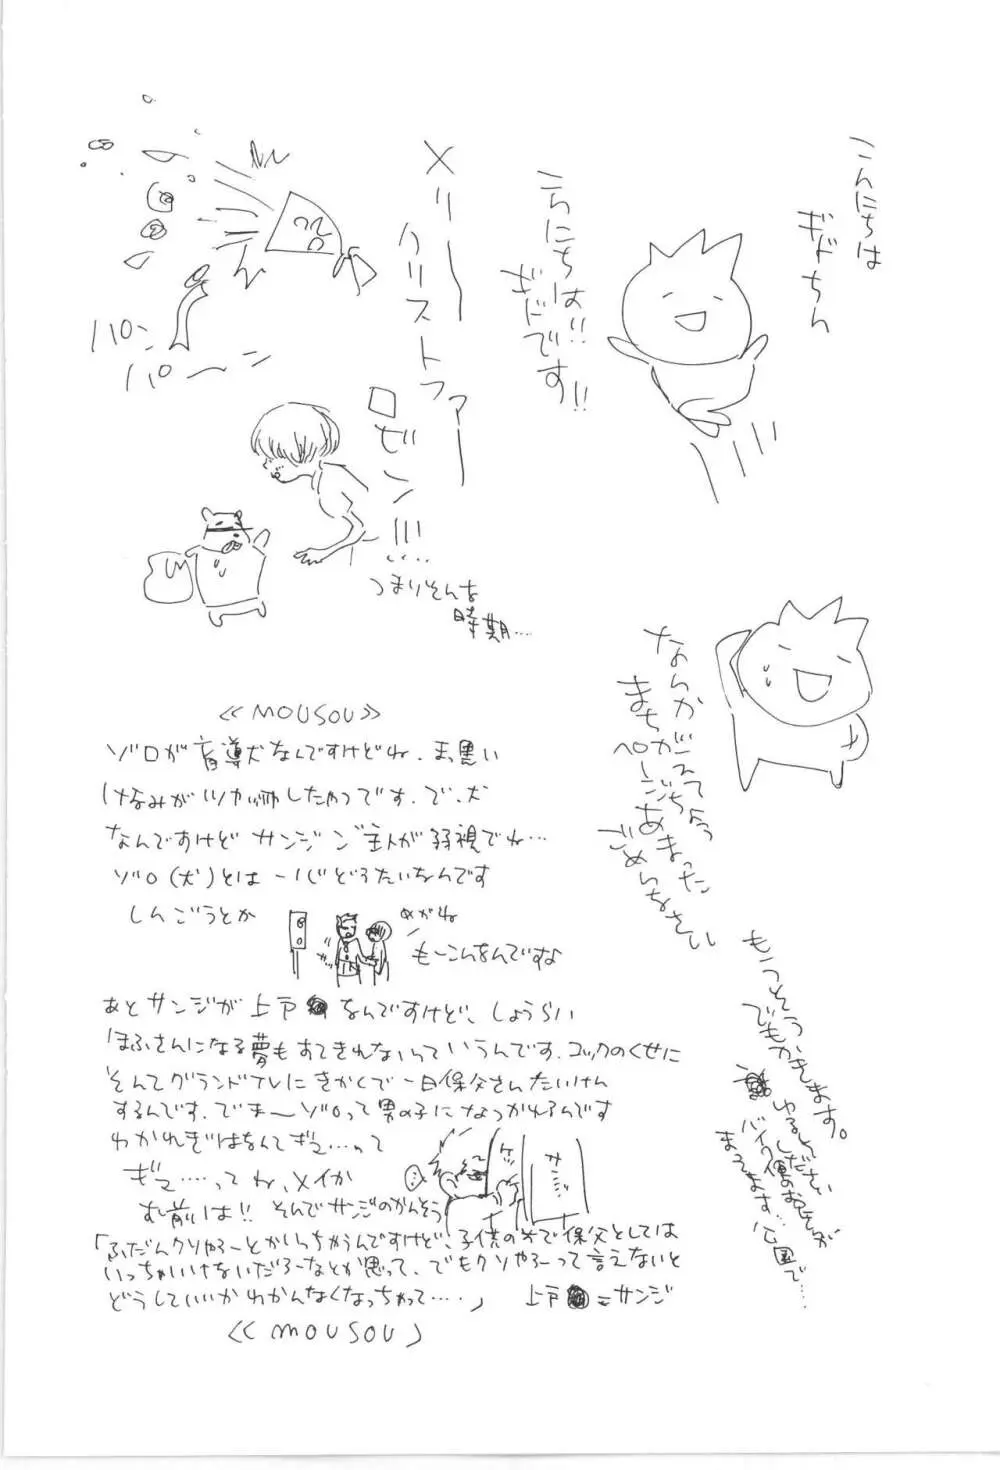 こんにちは
ギドちん
こんにちは!!
ギドです!!
メリー
クリストファー
ロビン!!!…
つまりそんな
時期…
パン
パーン
なんかビみょう
まちがえてちょう
ページあまった
ごめんなさい
もうそう
でもかきます。
ゆるしください
バイク便のおじさんが
まってます…公園で…
《MOUSOU》
ゾロが盲導犬なんですけどね、まっ黒い
けなみがツヤッツヤしたやつです。で、犬
なんですけど サンジご主人が弱視でね…
ゾロ(犬)とは一心どうたいなんです
しんごうとか
めがね
もーこんなんですな
あとサンジが上戸なんですけど、しょうらい
ほふさんになる夢もすてきれないっていうんです。コックのくせに
そんでグランドプレにきかくで一日保父さんたいけん
するんです。でまーゾロって男の子になつかれるんです
わかれぎはなんてギュ…って
ギュ……ってね、メイか
む前は!! そんでサンジのかんそう
サンジ
「ふだんクソやろーとかいっちゃうんですけど、子供の前で保父としては
いっちゃいけないだろーなとか思って、でもクソやろーって言えないと
どうしていいかわかんなくなっちゃって……」 上戸=サンジ
《MOUSOU》